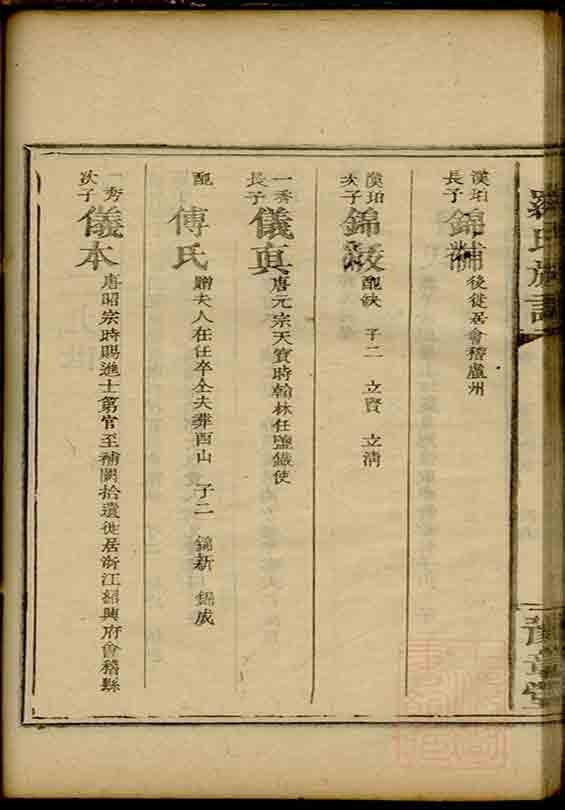 羅氏族譜
豫章堂
漢珀長子 錦黼 後徙居會稽蘆州
漢珀次子 錦黻 配缺 子二 立賢 立清
一秀長子 儀真 唐元宗天寶時翰林任鹽鐵使
配 傅氏 贈夫人在任卒仝夫葬酉山 子二 錦新 錦成
一秀次子 儀本 唐昭宗時賜進士第官至補闕拾遺徙居浙江紹興府會稽縣